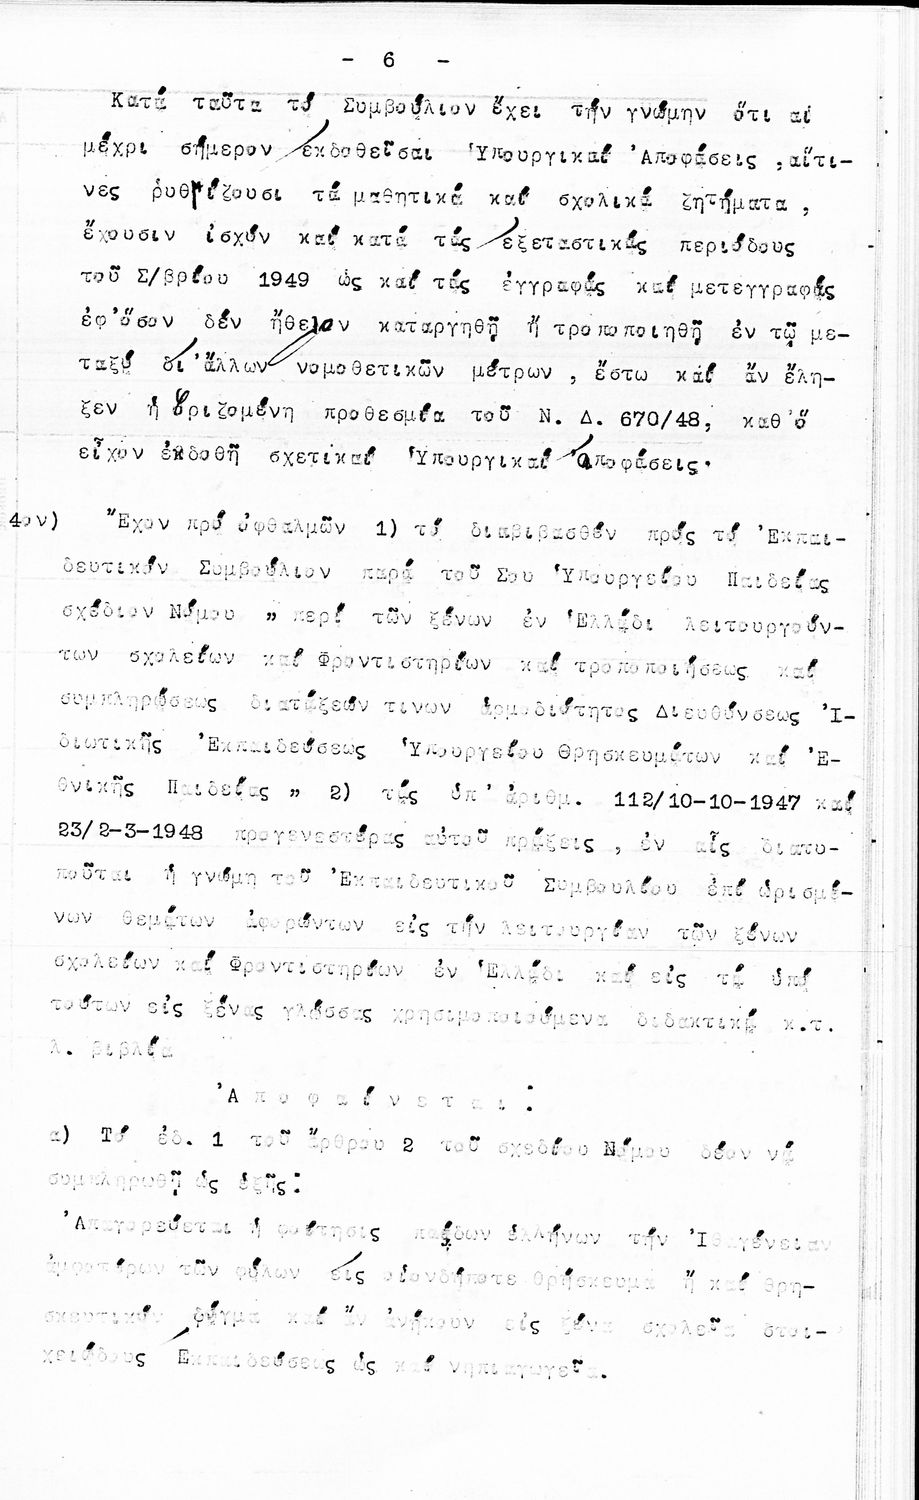 - 6 -
Κατά ταῦτα τό Συμβούλιον ἔχει τήν γνώμην ὅτι αἱ
μέχρι σήμερον ἐκδοθεῖσαι Ὑπουργικαί Ἀποφάσεις ,αἵτι-
νες ῥυθμίζουσι τά μαθητικά καί σχολικά ζητήματα ,
ἔχουσιν ἰσχύν καί κατά τάς ἐξεταστικάς περιόδους
τοῦ Σ/βρίου 1949 ὡς καί τάς ἐγγραφάς καί μετεγγραφάς
ἐφ'ὅσον δέν ἤθελον καταργηθῇ ἤ τροποποιηθῇ ἐν τῷ με-
ταξύ δι'ἄλλων νομοθετικῶν μέτρων , ἔστω καί ἄν ἔλη-
ξεν ἡ ὁριζομένη προθεσμία τοῦ Ν. Δ. 670/48, καθ'ὅ
εἶχον ἐκδοθῆ σχετικαί Ὑπουργικαί Ἀποφάσεις.
4ον) Ἔχον πρό ὀφθαλμῶν 1) τό διαβιβασθέν πρός τό Ἐκπαι-
δευτικόν Συμβούλιον παρά τοῦ Σου Ὑπουργείου Παιδείας
σχέδιον Νόμου " περί τῶν ξένων ἐν Ἑλλάδι λειτουργούν-
των σχολείων καί Φροντιστηρίων καί τροποποιήσεως καί
συμπληρώσεως διατάξεών τινων ἁρμοδιότητος Διευθύνσεως Ἰ-
διωτικῆς Ἐκπαιδεύσεως Ὑπουργείου Θρησκευμάτων καί Ἐ-
θνικῆς Παιδείας " 2) τάς ὑπ' ἀριθμ. 112/10-10-1947 καί
23/2-3-1948 προγενεστέρας αὐτοῦ πράξεις , ἐν αἷς διατυ-
ποῦται ἡ γνώμη τοῦ Ἐκπαιδευτικοῦ Συμβουλίου ἐπί ὡρισμέ-
νων θεμάτων ἀφορώντων εἰς τήν λειτουργίαν τῶν ξένων
σχολείων καί Φροντιστηρίων ἐν Ἑλλάδι καί εἰς τά ὑπό
τούτων εἰς ξένας γλώσσας χρησιμοποιούμενα διδακτικά κ.τ.
λ. βιβλία
Ἀ π ο φ α ί ν ε τ α ι :
α) Τό ἐδ. 1 τοῦ ἄρθρου 2 τοῦ σχεδίου Νόμου δέον νά
συμπληρωθῇ ὡς ἑξῆς:
Ἀπαγορεύεται ἡ φοίτησις παίδων ἑλλήνων τήν Ἰθαγένειαν
ἀμφοτέρων τῶν φύλων εἰς οἱονδήποτε θρήσκευμα ἤ καί θρη-
σκευτικόν δόγμα καί ἄν ἀνήκουν εἰς ξένα σχολεῖα στοι-
χειώδους Ἐκπαιδεύσεως ὡς καί νηπιαγωγεῖα.